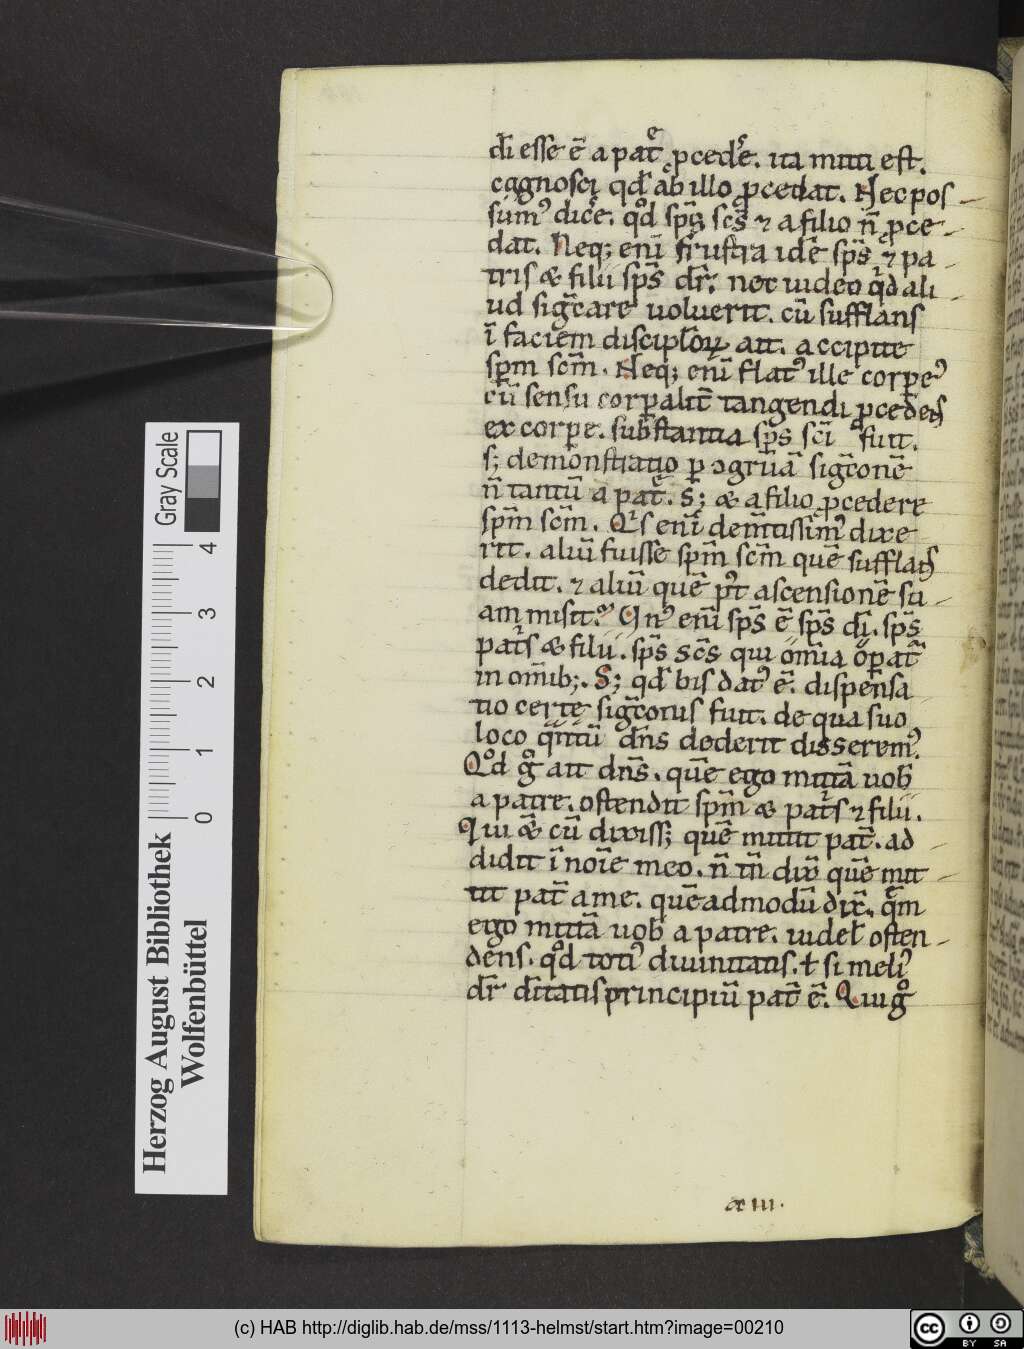 dī esse ē a patͤ ꝓcedͤe. ita mitti est.
cognosci qd̓ ab illo ꝓcedat. Nec pos
sumꝰ dic̄e. qͦd sp̄s sc̄s ⁊ a filio n̄ ꝓce
dat. Neq; enī frustra idē sp̄s ⁊ pa
tris & filii sp̄s dr̄. nec uideo qͥd ali
ud siḡcare uoluerit. cū sufflans
ī faciem discipl̓oꝝ ait. accipite
sp̄m sc̄m. Neq; enī flatꝰ ille corꝑeꝰ
cū sensu corꝑalit̄ tangendi ꝓcedēs
ex corꝑe. substantia sp̄s sc̄i fuit.
s; demonstratio ꝑ ↄgruā siḡconē
n̄ tantū a patͤ. S; & a filio ꝓcedere
sp̄m sc̄m. Qͥs enī dem̄tissimꝰ dixe
rit. aliū fuisse sp̄m sc̄m quē sufflās
dedit. ⁊ aliū quē pͦt ascensionē su
am misit. Vnꝰ enī sp̄s ē sp̄s dī. sp̄s
patͥs & filii. sp̄s sc̄s qui om̄ia oꝑat᷑
in om̄ib;. S; qd̓ bis datꝰ ē. dispensa
tio certe siḡconis fuit. de qua suo
loco qͣntū dn̄s dederit disseremꝰ.
Qͦd gͦ ait dn̄s. quē ego mittā uob̄
a patre. ostendit sp̄m & patͥs ⁊ filii.
Qui & cū dixiss; quē mittit pat̄. ad
didit ī noīe meo. n̄ tn̄ dix̄ quē mit
tit pat̄ a me. quēadmodū dix̄. quē
ego mittā uob̄ a patre. uidel̓ osten
dens. qͦd totiꝰ diuinitatis. ł si meliꝰ
dr̄ dītatis principiū pat̄ ē. Qui gͦ
& III.
Herzog August Bibliothek
Wolfenbüttel
0 1 2 3 4
Gray Scale
(c) HAB http://diglib.hab.de/mss/1113-helmst/start.htm?image=00210
cc BY SA